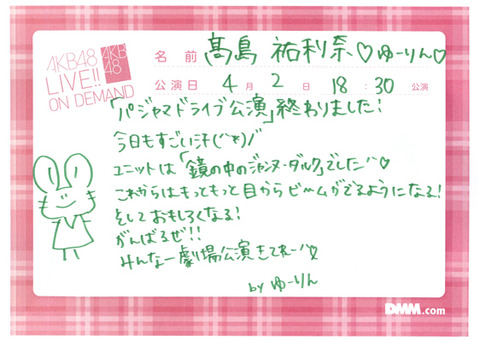 AKB48
LIVE!!
ON DEMAND
AKB
48
名前 髙島 祐利奈♡ゆーりん♡
公演日 4月2日 18:30公演
「パジャマドライブ公演」終わりました!
今日もすごい汗(^^)/
ユニットは「鏡の中のジャンヌ・ダルク」でした♡
これからはもっともっと目からビームがでるようになる!
そしておもしろくなる!
がんばるぜ!!
みんなー劇場公演きてねー♡
by ゆーりん
DMM.com